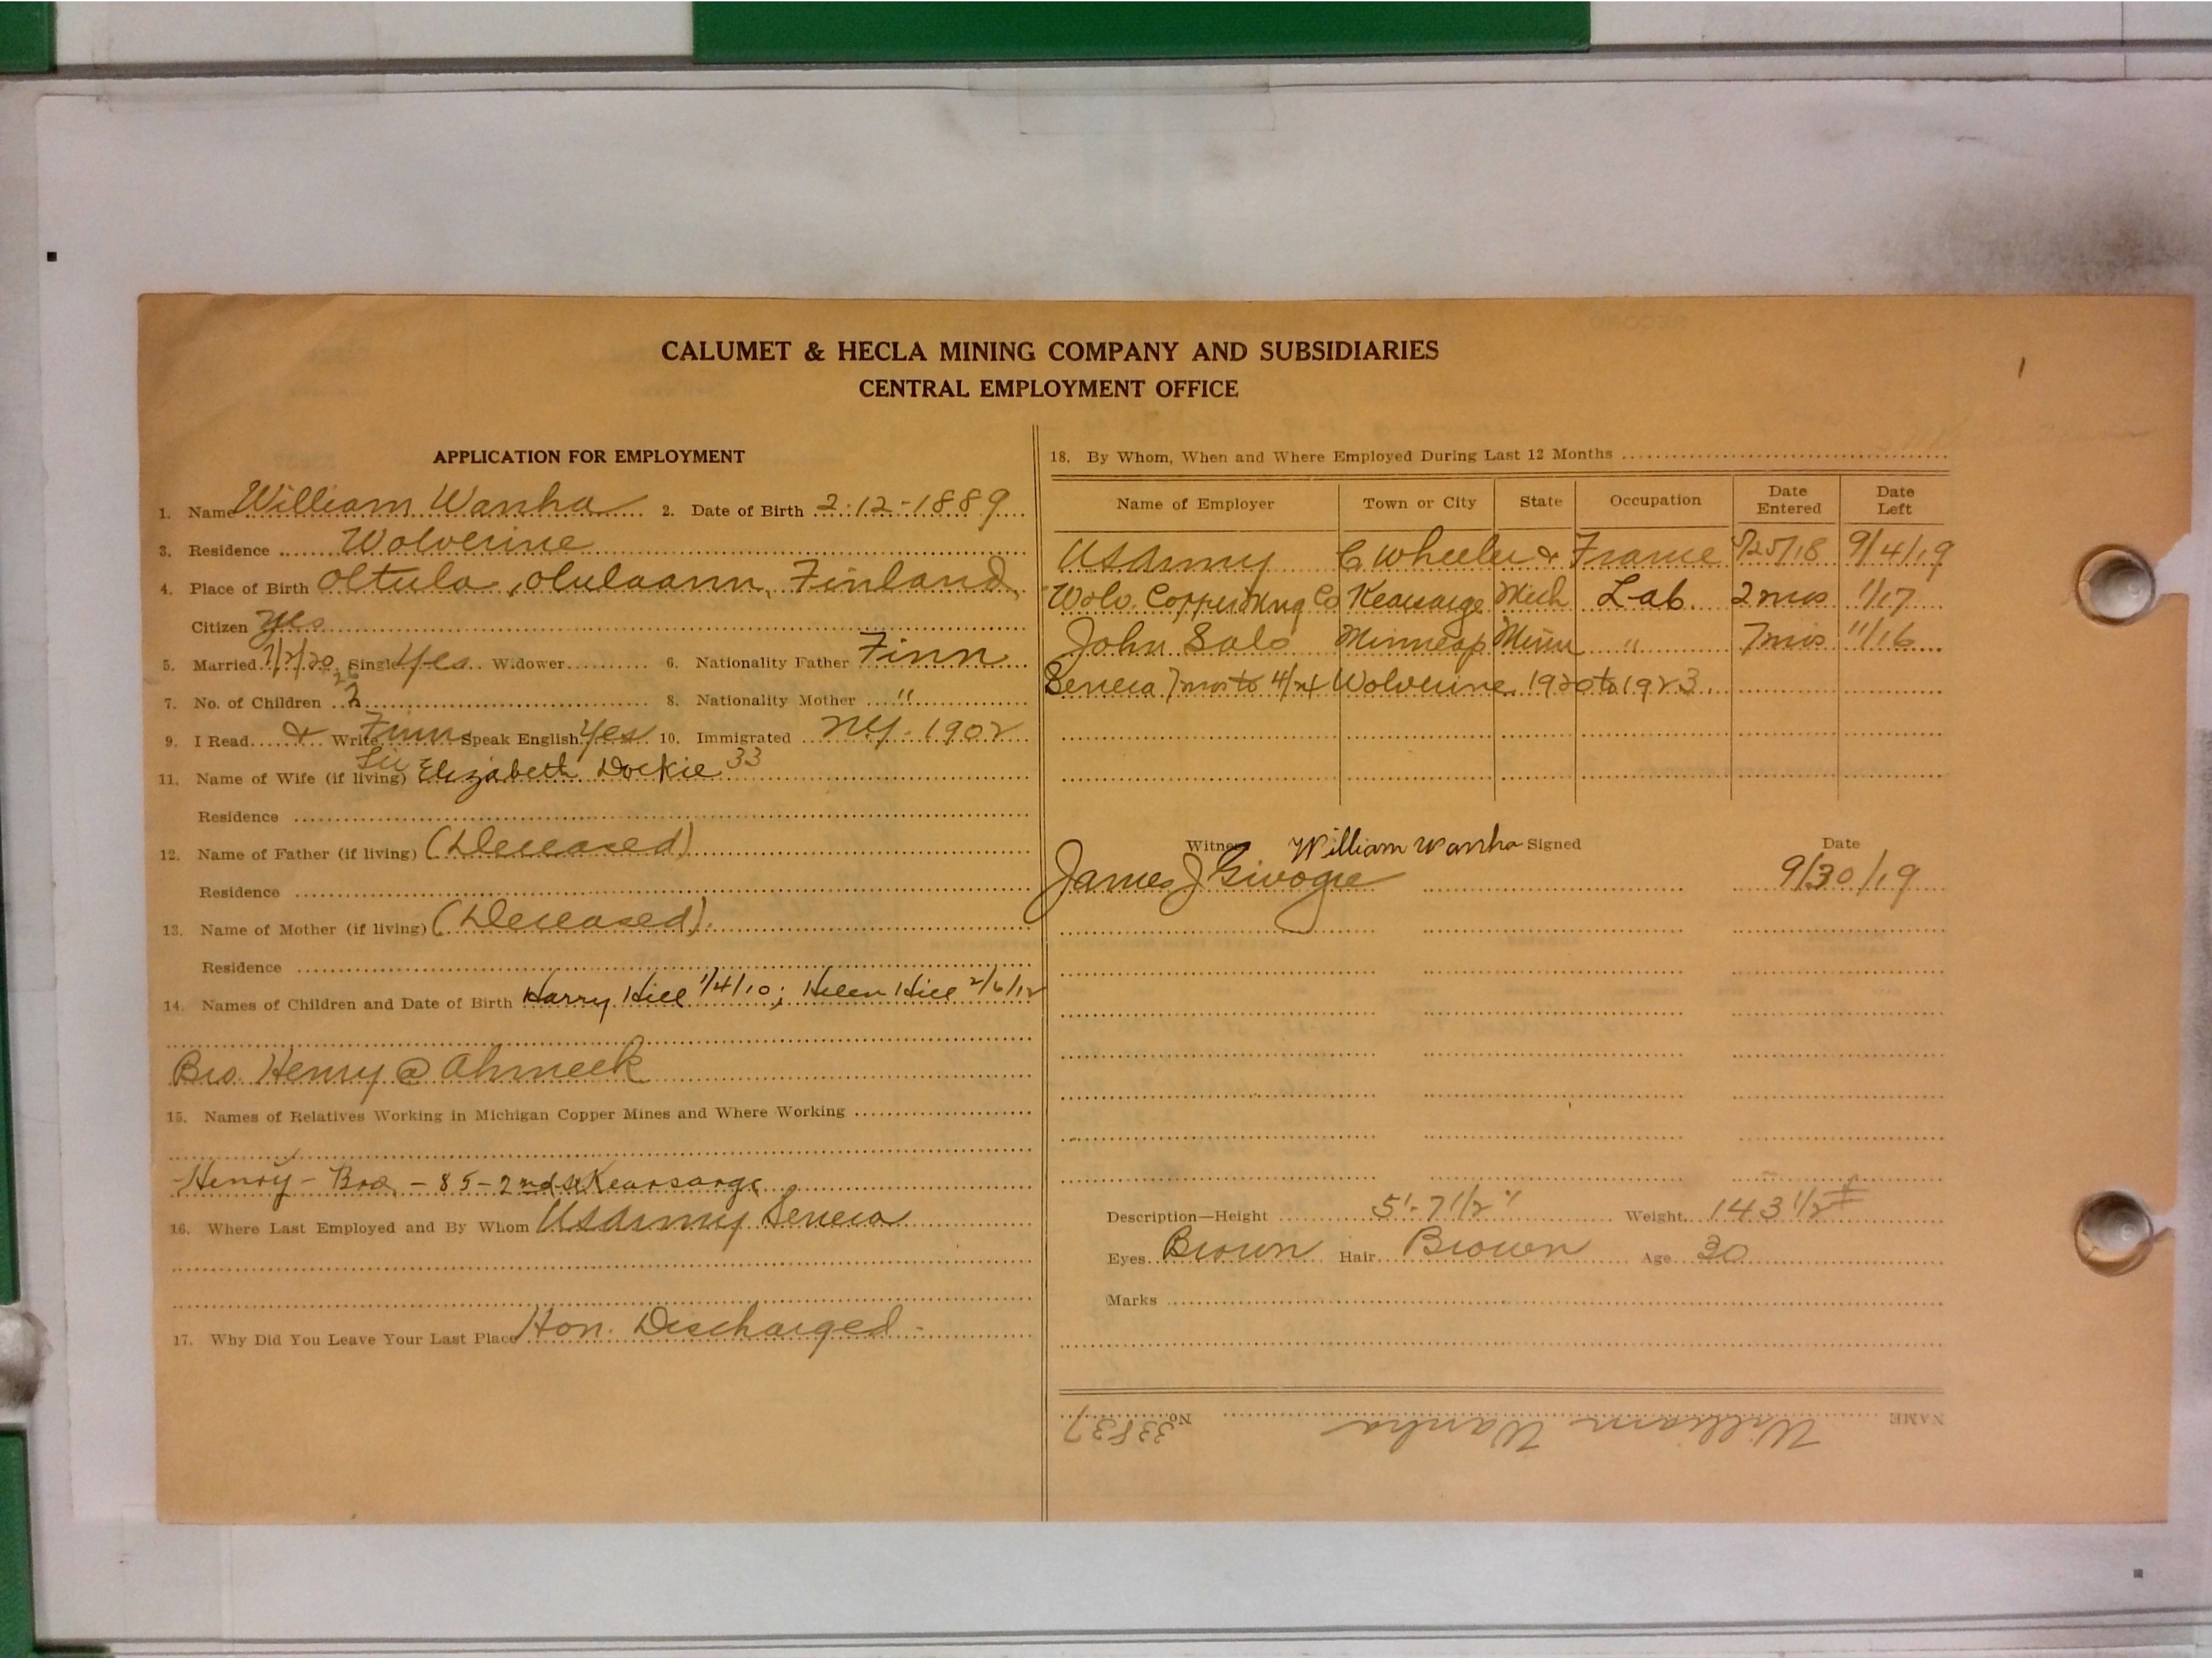 CALUMET & HECLA MINING COMPANY AND SUBSIDIARIES
CENTRAL EMPLOYMENT OFFICE
APPLICATION FOR EMPLOYMENT
1. Name William Wanha 2. Date of Birth 2-12-1889
3. Residence Wolverine
4. Place of Birth Oltula, Olulaann, Finland,
Citizen Yes
5. Married 7/2/20 Single Yes Widower 6. Nationality Father Finn
7. No. of Children 2 8. Nationality Mother "
9. I Read & Write Finn Speak English Yes 10. Immigrated NY. 1902
11. Name of Wife (if living) Elizabeth Dockie 33
Residence
12. Name of Father (if living) (Deceased)
Residence
13. Name of Mother (if living) (Deceased).
Residence
14. Names of Children and Date of Birth Harry Hill 1/4/10; Helen Hill 2/6/12
Bro. Henry @ Ahmeek
15. Names of Relatives Working in Michigan Copper Mines and Where Working
Henry - Bro. - 85 - 2nd St Kearsarge
16. Where Last Employed and By Whom US Army Seneca
17. Why Did You Leave Your Last Place Hon. Discharged -
18. By Whom, When and Where Employed During Last 12 Months
Name of Employer Town or City State Occupation Date Entered Date Left
US Army C Wheeler & France 5/25/18 9/4/19
Wolv. Copper Mng Co Kearsarge Mich Lab 2 mos 1/17
John Salo Minneap Minn " 7 mos 11/16
Seneca 7 mos to 4/24 Wolverine 1920 to 1923
Witness William Wanha Signed Date
James J Givogre 9/30/19
Description—Height 5'-7 1/2" Weight 143 1/2 #
Eyes Brown Hair Brown Age 30
Marks
NAME William Wanha No. 33837